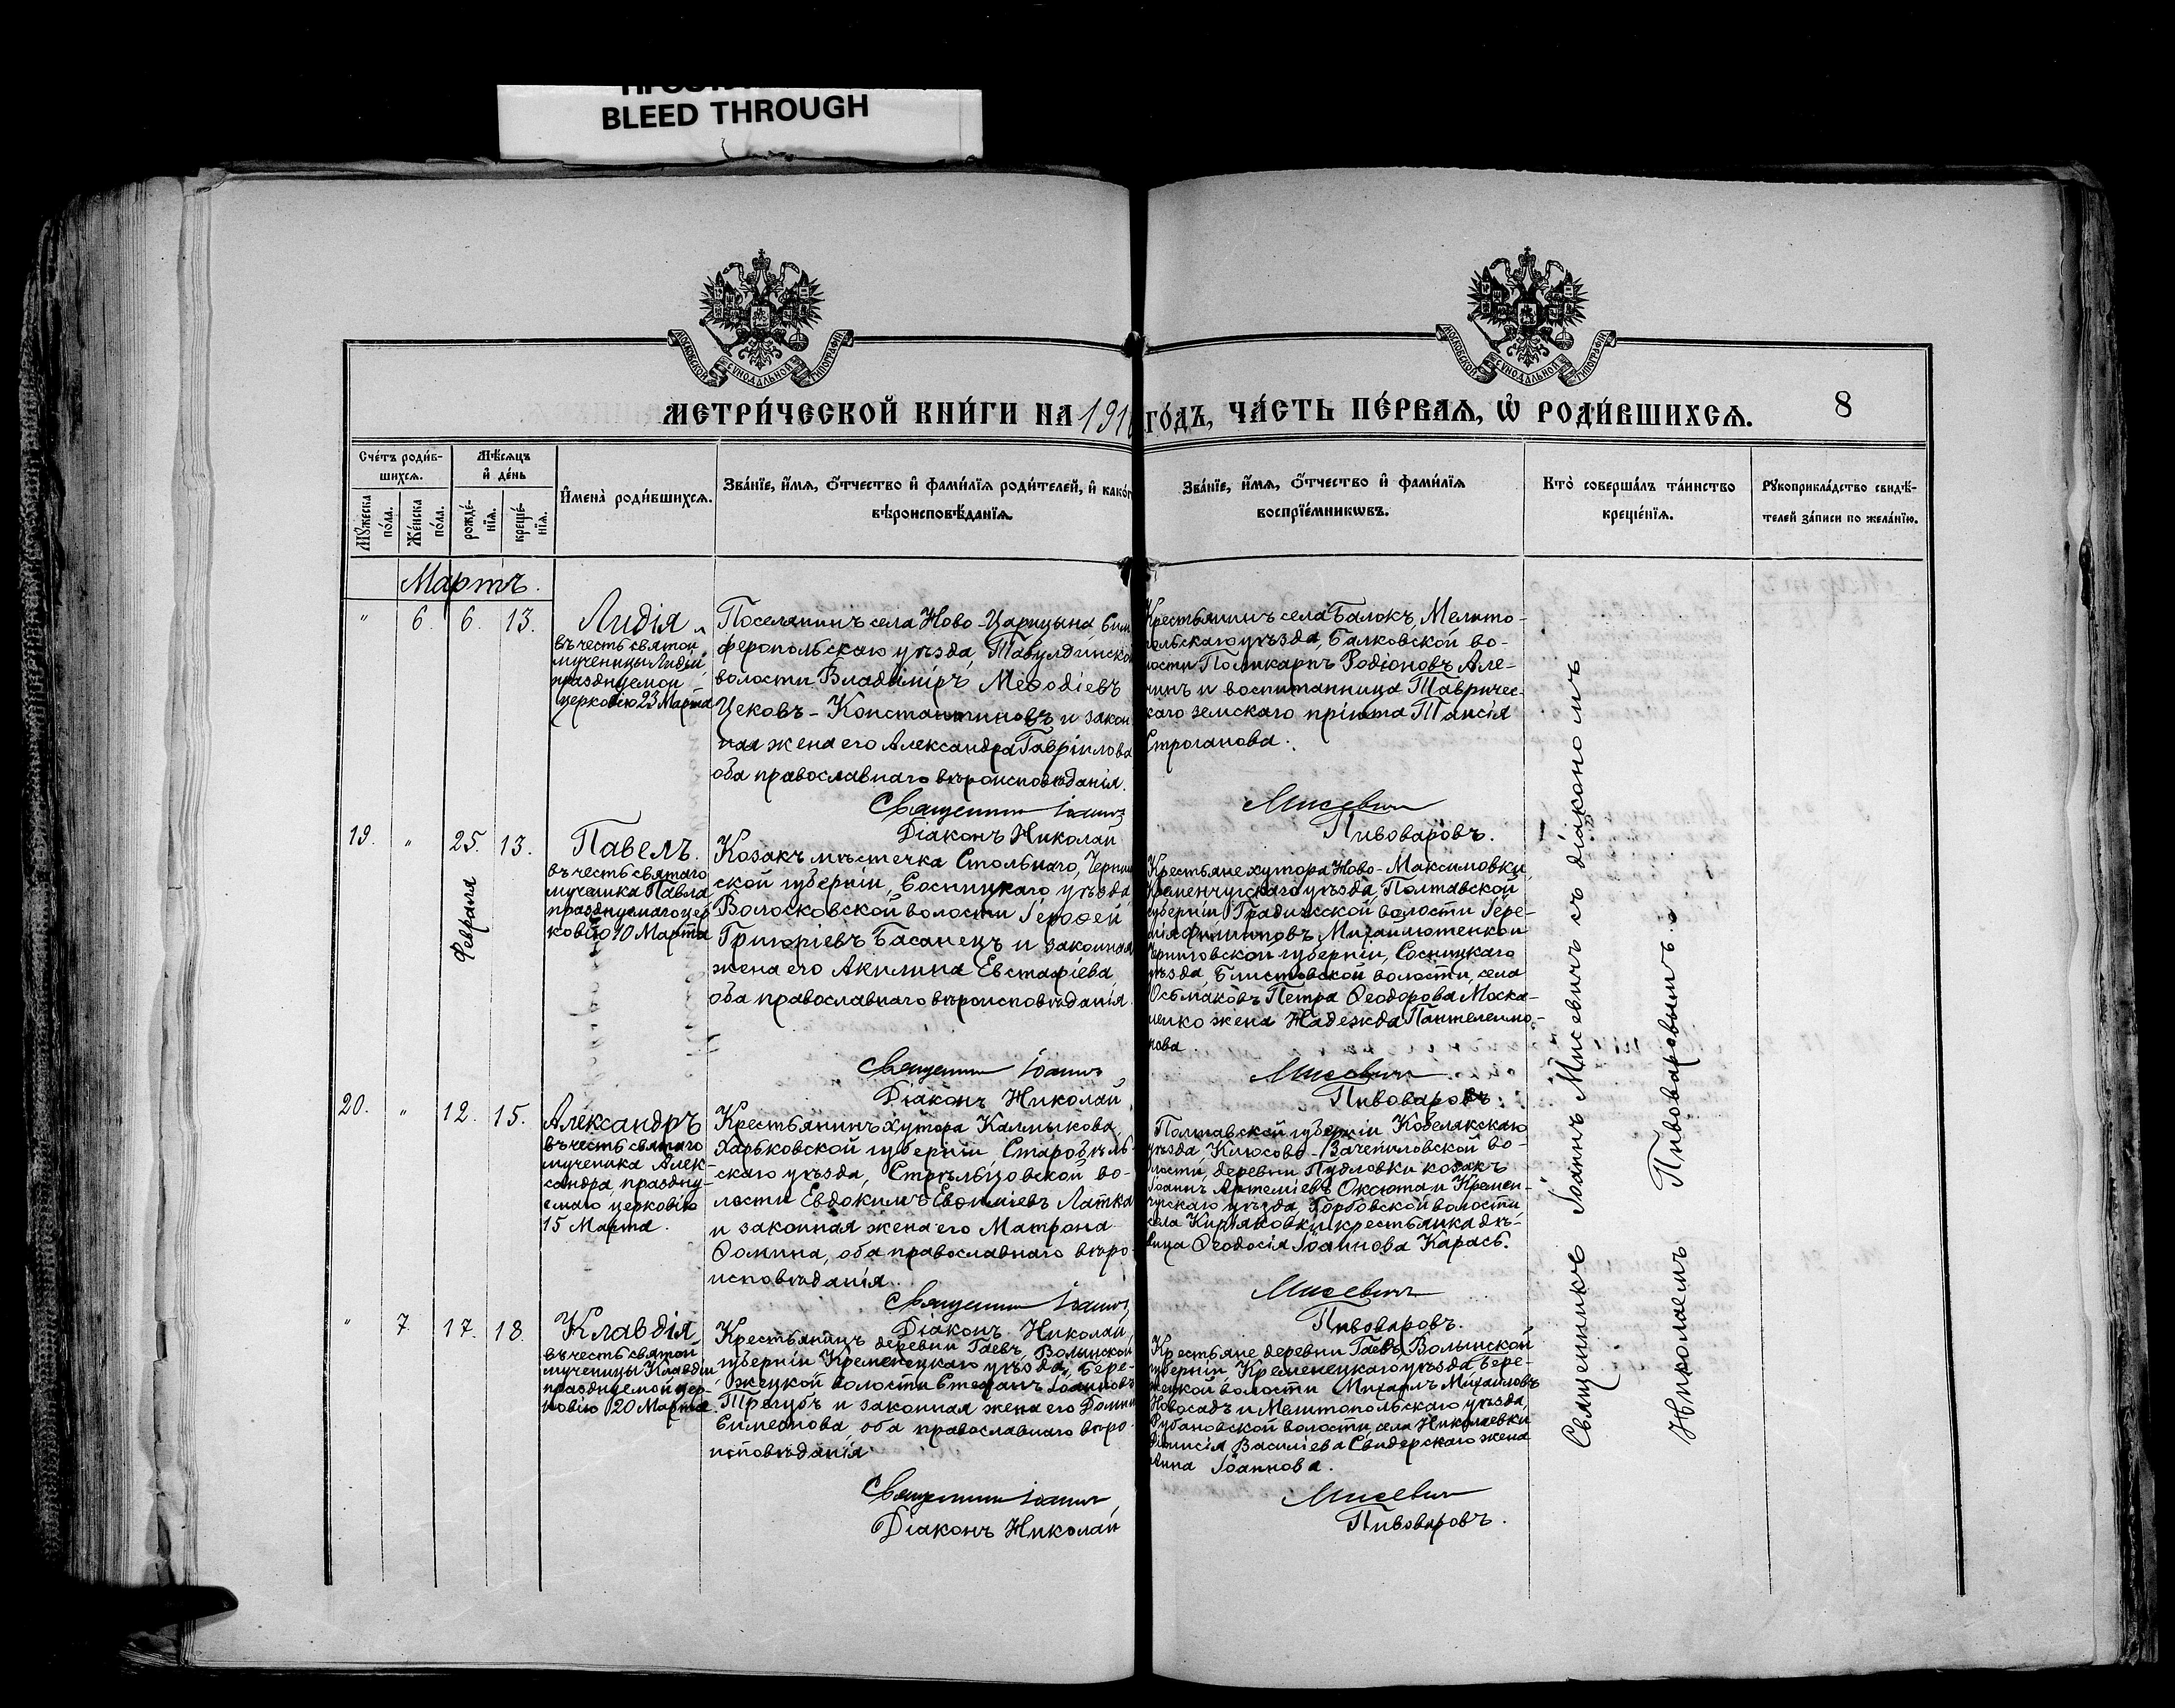 BLEED THROUGH
МОСКОВСКОЙ СѴНОДАЛЬНОЙ ТИПОГРАФІИ
МОСКОВСКОЙ СѴНОДАЛЬНОЙ ТИПОГРАФІИ
МЕТРИ́ЧЕСКОЙ КНИ́ГИ НА 191 ГО́ДЪ, ЧА́СТЬ ПЕ́РВАѦ, Ѡ РОДИ́ВШИХСѦ.
8
Сче́тъ роди́в-
шихсѧ.
Мꙋжеска по́ла.
Же́нска по́ла.
Мѣ́сѧцъ
и҆ де́нь
рожде́-
нїѧ.
креще́-
нїѧ.
И҆мена̀ роди́вшихсѧ.
Зва́нїе, и҆́мѧ, ѻ҆́тчество и҆ фами́лїѧ роди́телей, и҆ како́г
вѣроисповѣ́данїѧ.
Зва́нїе, и҆́мѧ, ѻ҆́тчество и҆ фами́лїѧ
воспрїе́мникѡвъ.
Кто̀ соверша́лъ та́инство
креще́нїѧ.
Рꙋкоприкла́дство свидѣ́-
телей за́писи по жела́нїю.
Мартъ.
" 6. 6. 13.
Лидія
въ честь святой
мученицы Лидіи,
празднуемой
церковію 23 Марта
Поселянинъ села Ново-Царицына, Сим
феропольскаго уѣзда, Табулдинско
волости Владиміръ Меѳодіевъ
Цековъ-Константиновъ и закон
ная жена его Александра Гавріилова
оба православнаго вѣроисповѣданія.
Священникъ Іоаннъ
Діаконъ Николай
Крестьянинъ села Балокъ, Мелито-
польскаго уѣзда, Балковской во-
лости Поликарпъ Родіоновъ Але-
и воспитанница Тавричес-
каго земскаго пріюта Таисія
Строганова.
Мисевичъ
Пивоваровъ.
19. " 25. 13.
Февраля
Павелъ.
въ честь святаго
мученика Павла
празднуемаго цер
ковію 10 Марта
Козакъ мѣстечка Стольнаго, Черни
ской губерніи, Сосницкаго уѣзда,
Волосковской волости Іероѳей
Григоріевъ Басанецъ и законная
жена его Акилина Евстафіева,
оба православнаго вѣроисповѣданія.
Священникъ Іоаннъ
Діаконъ Николай
Крестьяне хутора Ново-Максимовки,
Кременчугскаго уѣзда, Полтавской
губерніи Градижской волости Іере-
мія Филипповъ
Черниговской губерніи, Сосницкаго
уѣзда, Блистовской волости, села
Осьмаковъ Петра Ѳеодорова Моска-
ленко жена Надежда Пантелеимо-
нова.
Мисевичъ
Пивоваровъ.
20. " 12. 15.
Александръ
въ честь святаго
мученика Алек-
сандра, праздну-
емаго церковію
15 Марта.
Крестьянинъ хутора Калмыкова,
Харьковской губерніи, Старобѣль-
скаго уѣзда, Стрѣльцовской во-
лости Евдокимъ Евѳиміевъ Латка
и законная жена его Матрона
Ѳомина, оба православнаго вѣро-
исповѣданія.
Священникъ Іоаннъ
Діаконъ Николай
Полтавской губерніи Кобелякскаго
уѣзда, Клюсово-Зачепиловской во-
лости, деревни Пудловки козакъ
Іоаннъ Артеміевъ Оксюта и Кремен-
чугскаго уѣзда, Горбовской волости,
села Кирьяковки крестьянка дѣ-
вица Ѳеодосія Іоаннова Карась.
Мисевичъ
Пивоваровъ.
" 7 17. 18.
Клавдія,
въ честь святой
мученицы Клавдіи,
празднуемой цер-
ковію 20 Марта
Крестьянинъ деревни Гаевъ, Волынской
губерніи Кременецкаго уѣзда, Бере-
жецкой волости Стефанъ Іоанновъ
Трегубъ и законная жена его Домни
Симеонова, оба православнаго вѣро-
исповѣданія
Священникъ Іоаннъ
Діаконъ Николай
Крестьяне деревни Гаевъ, Волынской
губерніи, Кременецкаго уѣзда Бере-
жецкой волости Михаилъ Михаиловъ
Новосадъ и Мелитопольскаго уѣзда,
Рубановской волости, села Николаевки
Діонисія Василіева Свидерскаго жена
Анна Іоаннова.
Мисевичъ
Пивоваровъ.
Священникъ Іоаннъ Мисевичъ съ діакономъ
Николаемъ Пивоваровымъ.